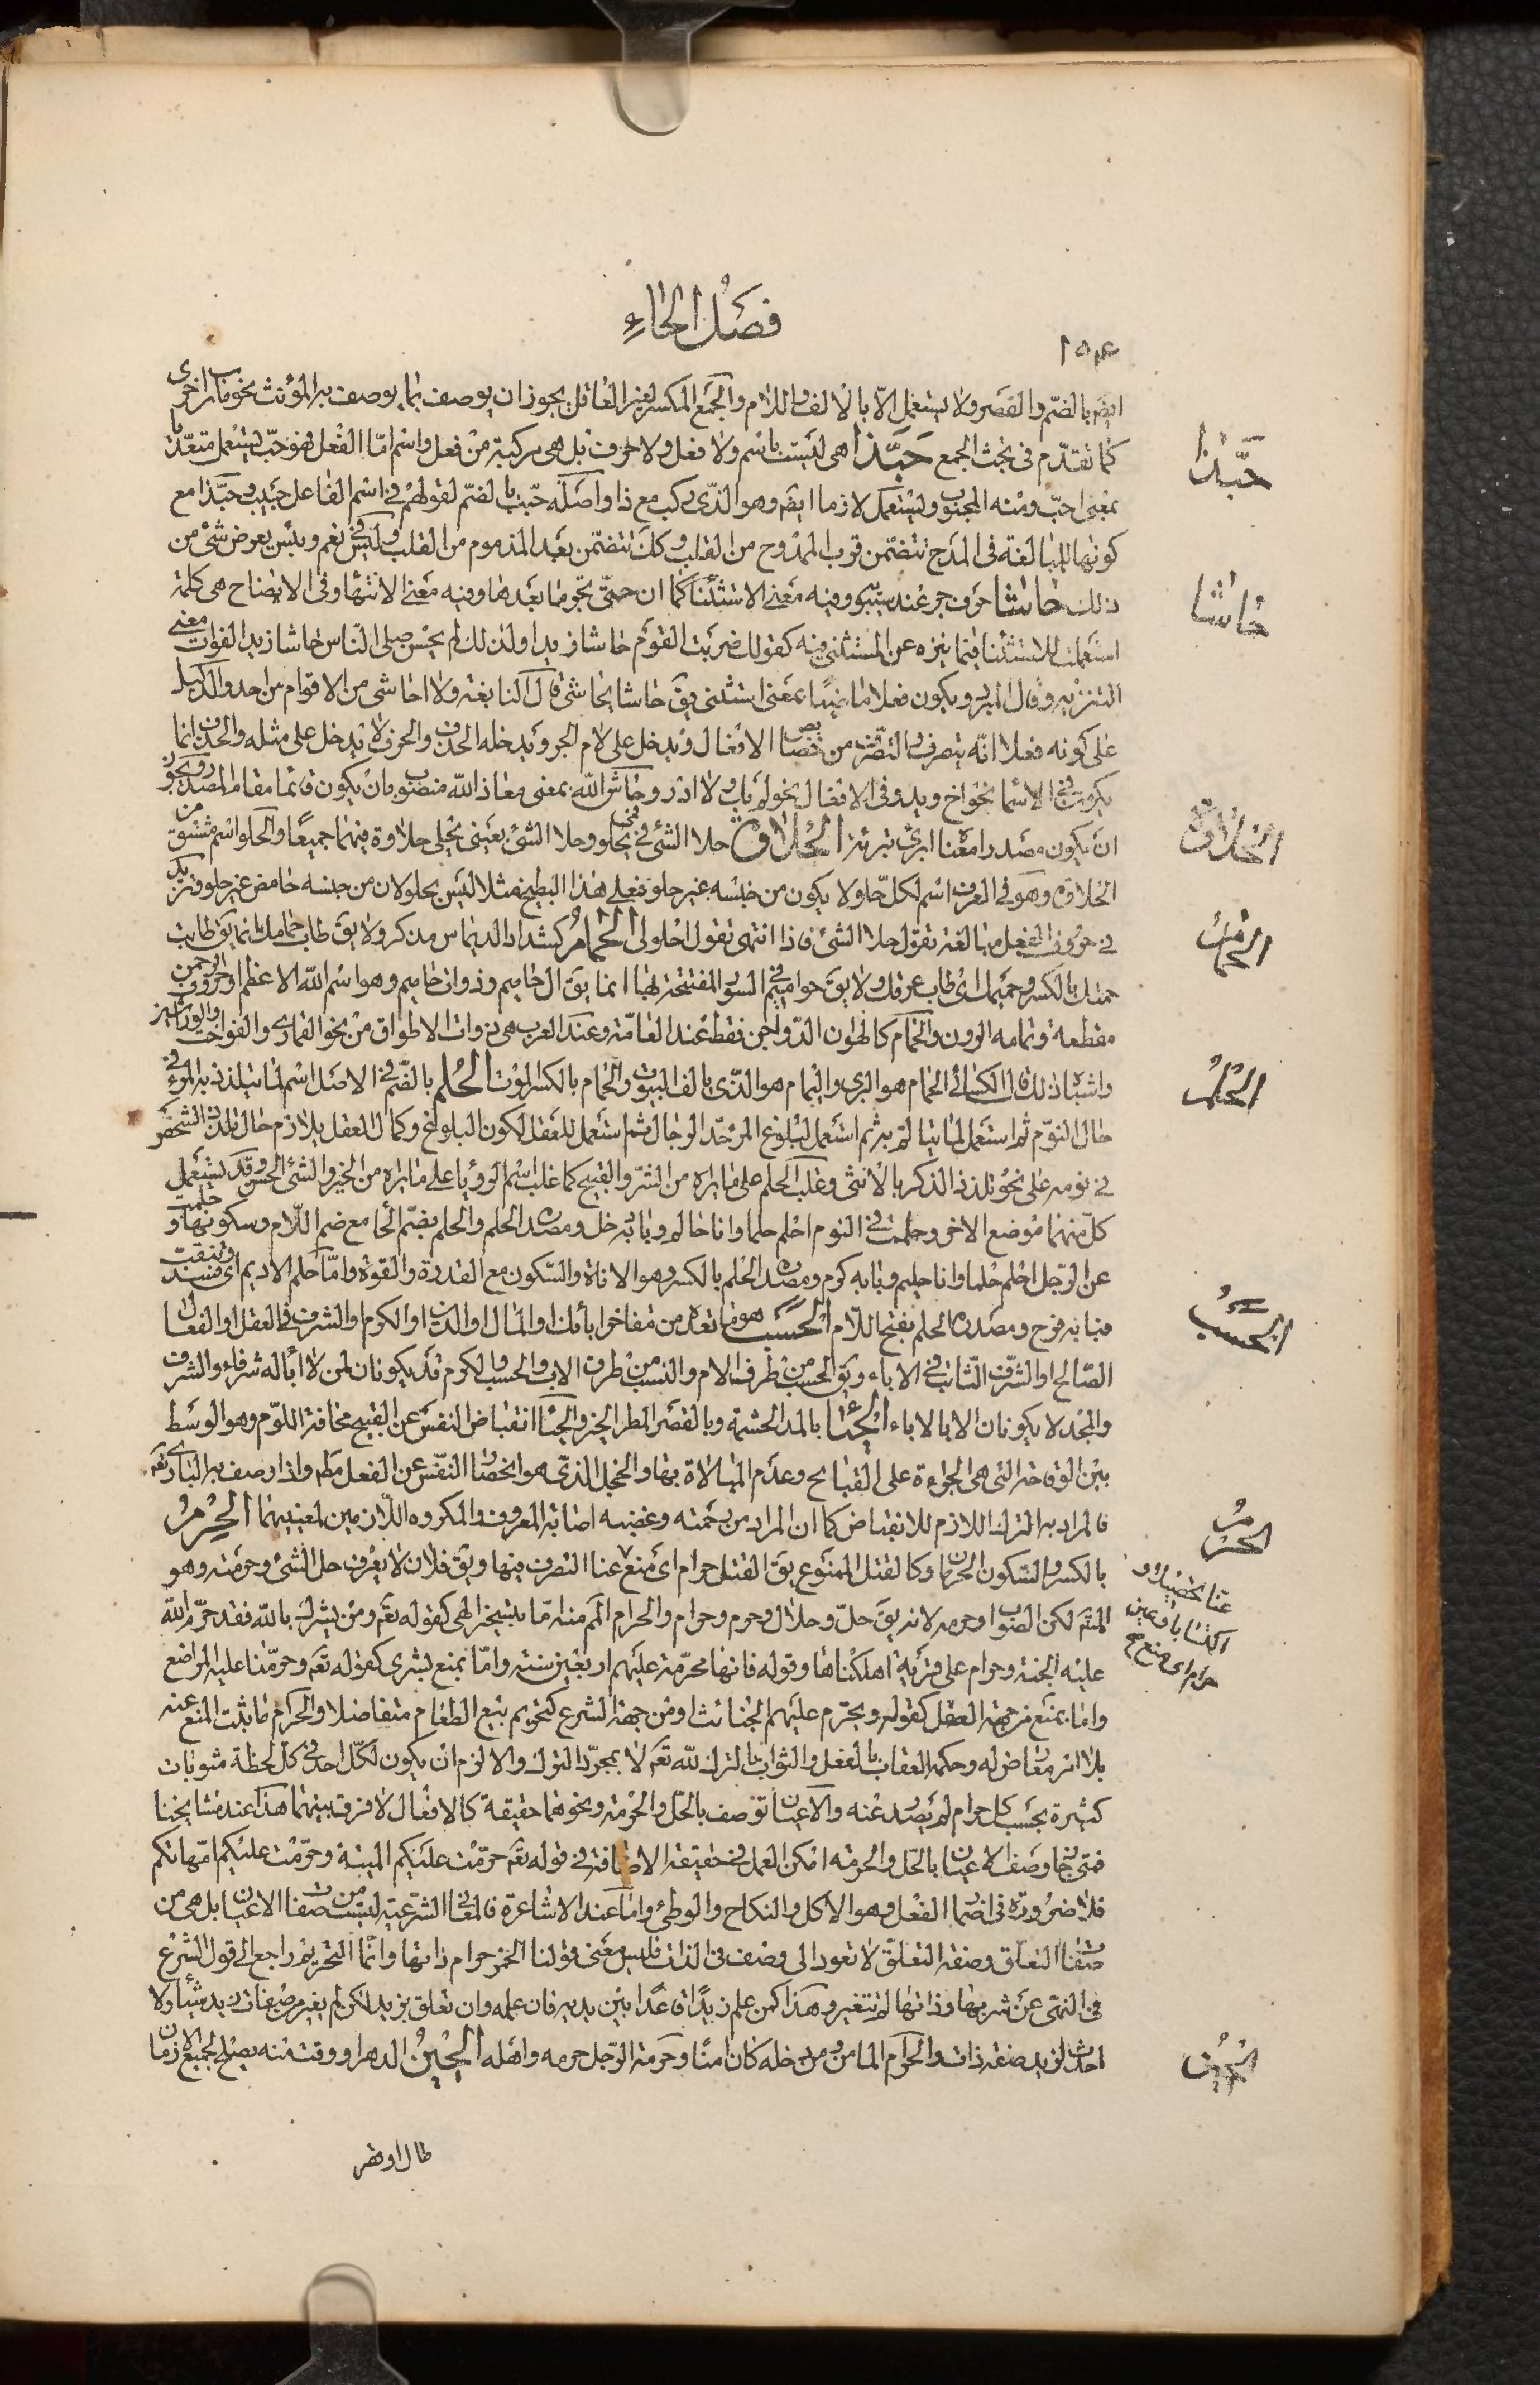 فصل الحاء
١٥٤
ايضَم بالضّم والقصر ولا يستعمل الّا بالالف واللام والجمع المكسر لغير العاقل يجوز ان يوصف بما يوصف به المؤنث نحو مآرب اخرى
كما تقدّم فى بحث الجمع حَبَّذا هى ليست باسم ولا فعل ولا حرف بل هى مركبة من فعل واسم امّا الفعل فهو حبّ يستعمل متعدّيا
بمعنى احبّ ومنه المحبوب ويستعمل لازما ايضَ وهو الذى ركب مع ذا واصله حبب بالضّم لقولهم فى اسم الفاعل حبيب وحبّذا مع
كونها للمبالغة فى المدح تتضمّن قرب الممدوح من القلب وكك تتضمّن بعد المذموم من القلب وليس فى نعم وبئس تعرض شئ من
ذلك حاشا حرف جر عند سيبويه وفيه معنى الاستثنا كما ان حتّى تجر ما بعدها وفيه معنى الانتهاء وفى الايضاح هى كلمة
استعملت للاستثنا فيما ينزه عن المستثنى فيه كقولك ضربت القوم حاشا زيدا ولذلك لم يحسن صلى النّاس حاشا زيد الفوات معنى
التنزيه وقال المبرد ويكون فعلا ماضيا بمعنى استثنى يقَ حاشا يحاشى قال النابغة ولا احاشى من الاقوام من احد والدليل
على كونه فعلا انّه يتصرف والتصرّف من خصايص الافعال ويدخل على لام الجر ويدخله الحذف والحرف لا يدخل على مثله والحذف انما
يكون فى الاسما نحو اخ ويد وفى الافعال نحو لم يك ولا ادر وحاش الله بمعنى معاذ الله منصوب بان يكون قائما مقام المصدر ويجوز
ان يكون مصدرا معناه ابرئ تبرئة الحلاوة حلا الشئ فى فمى يحلو وحلا الشئ بعينى يحلى حلاوة فيهما جميعا والحلو اسم مشتق من
الحلاوة وهو فى العرف اسم لكل حلو لا يكون من جنسه غير حلو فعلى هذا البطيخ مثلا ليس بحلو لان من جنسه حامض غير حلو وتزيد
فى حروف الفعل مبالغة تقول حلا الشئ فاذا انتهى تقول احلولى الحمام كشداد الديماس مذكر ولا يقَ طاب حمامك انما يقَ طابت
حمتك بالكسر وحميمك اى طاب عرقك ولا يقَ حواميم فى السور المفتتحة بها انما يقَ ال حاميم وذوات حاميم وهو اسم الله الاعظم او حروف الرحمن
مقطعة وتمامه الر ون والحمام كالهون الدّواجن فقط عند العامّة وعند العرب هى ذوات الاطواق من نحو القمارى والفواخت والوراشين
واشباه ذلك قال الكسائى الحمام هو البرى واليمام هو الذى بالف البيوت والحمام بالكسر الموت الحلم بالضّم فى الاصل اسم لما يتلذذ به المرء فى
حال النوّم ثم استعمل لما يتالم به ثم استعمل لبلوغ المرء حد الرجال ثم استعمل للعقل لكون البلوغ وكمال العقل يلازم حال تلذذ الشخص
فى نومه على نحو تلذذ الذكر بالانثى وغلب الحلم على ما يراه من الشرّ والقبيح كما غلب اسم الرؤيا على ما يراه من الخير والشئ الحسن وقد يستعمل
كل منهما موضع الاخر وحلمت فى النوم احلم حلما وانا حالم وبابه دخل ومصدره الحلم والحلم بضم الحا مع ضم اللّام وسكونها وحلمت
عن الرّجل احلم حلما وانا حليم وبابه كرم ومصدره الحلم بالكسر وهو الاناة والسّكون مع القدرة والقوة وامّا حلم الاديم اى فسد وتثقبت
فبابه فرح ومصدره الحلم بفتح اللّام الحسب هو ما تعده من مفاخر ابأئك او المال او الدين او الكرم او الشرف فى العقل او الفعال
الصّالح او الشرف الثابت فى الاباء ويقَ الحسب من طرف الام والنسب من طرف الاب والحسب والكرم قد يكونان لمن لا اباء له شرفاء والشرف
والمجد لا يكونان الا بالاباء الحياء بالمد الحشمة وبالقصر المطر الخير والحيَا انقباض النفس عن القبيح مخافة اللوّم وهو الوسَط
بين الوقاحة التى هى الجراءة على القبايح وعدم المبالاة بها والخجل الذّى هو انحصار النّفس عن الفعل مطَ واذا وصف به البارى تعَ
فالمراد به الترك اللازم للانقباض كما ان المراد من رحمته وغضبه اصابة المعروف والمكروه اللّازمين لمعنييهما الحرم
بالكسر والسّكون الحرمان وكالقتل الممنوع يقَ القتل حرام اى منع عنا التصرف فيها ويقَ فلان لا يعرف حل الشئ وحرمته وهو
المتقَ لكن الصواب وحرمه لانه يقَ حلّ وحلال وحرم وحرام والحرام المَم منه امّا بتسخير الهى كقوله تعَ ومن يشرك بالله فقد حرّم الله
عليه الجنة وحرام على قرية اهلكناها وقوله فانها محرّمة عليهم اربعين سنة وامّا بمنع بشرى كقوله تعَ وحرّمنا عليه المراضع
واما بمنع من جهة العقل كقوله ويحرّم عليهم الخبائث او من جهة الشرع كتحريم بيع الطعام متفاضلا والحرام ما يثبت المنع عنه
بلا امر معارض له وحكمه العقاب بالفعل والثواب بالترك لله تعَ لا بمجرّد الترك والا لزم ان يكون لكل احد فى كل لحظة مثوبات
كثيرة بحسب كل حرام لم يصدر عنه والاعيان توصف بالحل والحرمة ونحوهما حقيقة كالافعال لا فرق بينهما هذا عند مشايخنا
فمتى جاز وصف الاعيان بالحل والحرمة امكن العمل فى حقيقة الاضافة فى قوله تعَ حرّمت عليكم الميتة وحرّمت عليكم امّهاتكم
فلا ضرورة فى اضمار الفعل وهو الاكل والنكاح والوطئ واما عند الاشاعرة فالمعانى الشّرعية ليست من صفات الاعيان بل هى من
صفات التعلّق وصفة التعلّق لا تعود الى وصف فى الذات فليس معنى قولنا الخمر حرام ذاتها وانّما التحريم راجع الى قول الشرع
فى النهى عن شربها وذاتها لم تتغير وهذا كمن علم زيدا قاعدا بين يديه فان علمه وان تعلق بزيد لكن لم يغير من صفات زيد شيئا ولا
احدث لزيد صفة ذات والحرام المامن ومن دخله كان امنا وحرمة الرّجل حرمه واهله الحين الدهر او وقت منه يصلح لجميع الازمان
طال او قصر
حبّذا
حاشا
الحلاوة
الحمام
الحلم
الحسب
الحرم
عنا تحصيله و
اكتسابا وعين
حرام اى منع صح
الحين